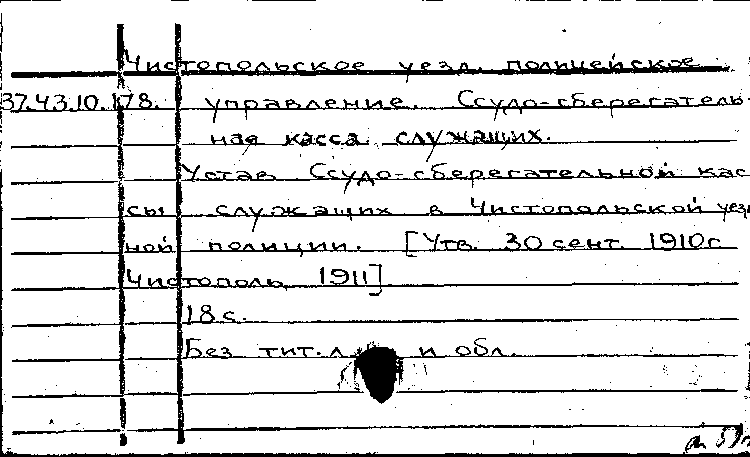 Чистопольское уезд. полицейское
37.43.10.178. управление. Ссудо-сберегатель-
ная касса служащих.
Устав Ссудо-сберегательной кас-
сы служащих в Чистопольской уезд
ной полиции. [Утв. 30 сент. 1910г
Чистополь, 1911]
18 с.
Без тит. л. и обл.